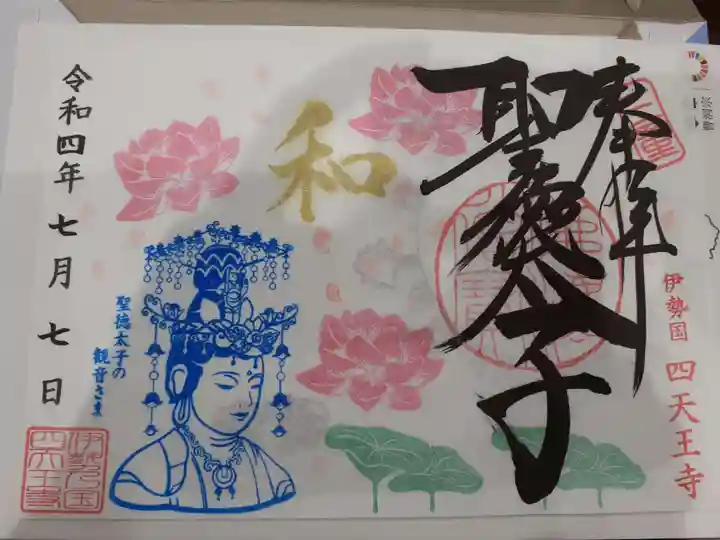 奉拝
聖徳太子
伊勢国 四天王寺
和
聖徳太子の
観音さま
令和四年七月七日
伊勢国
四天王寺